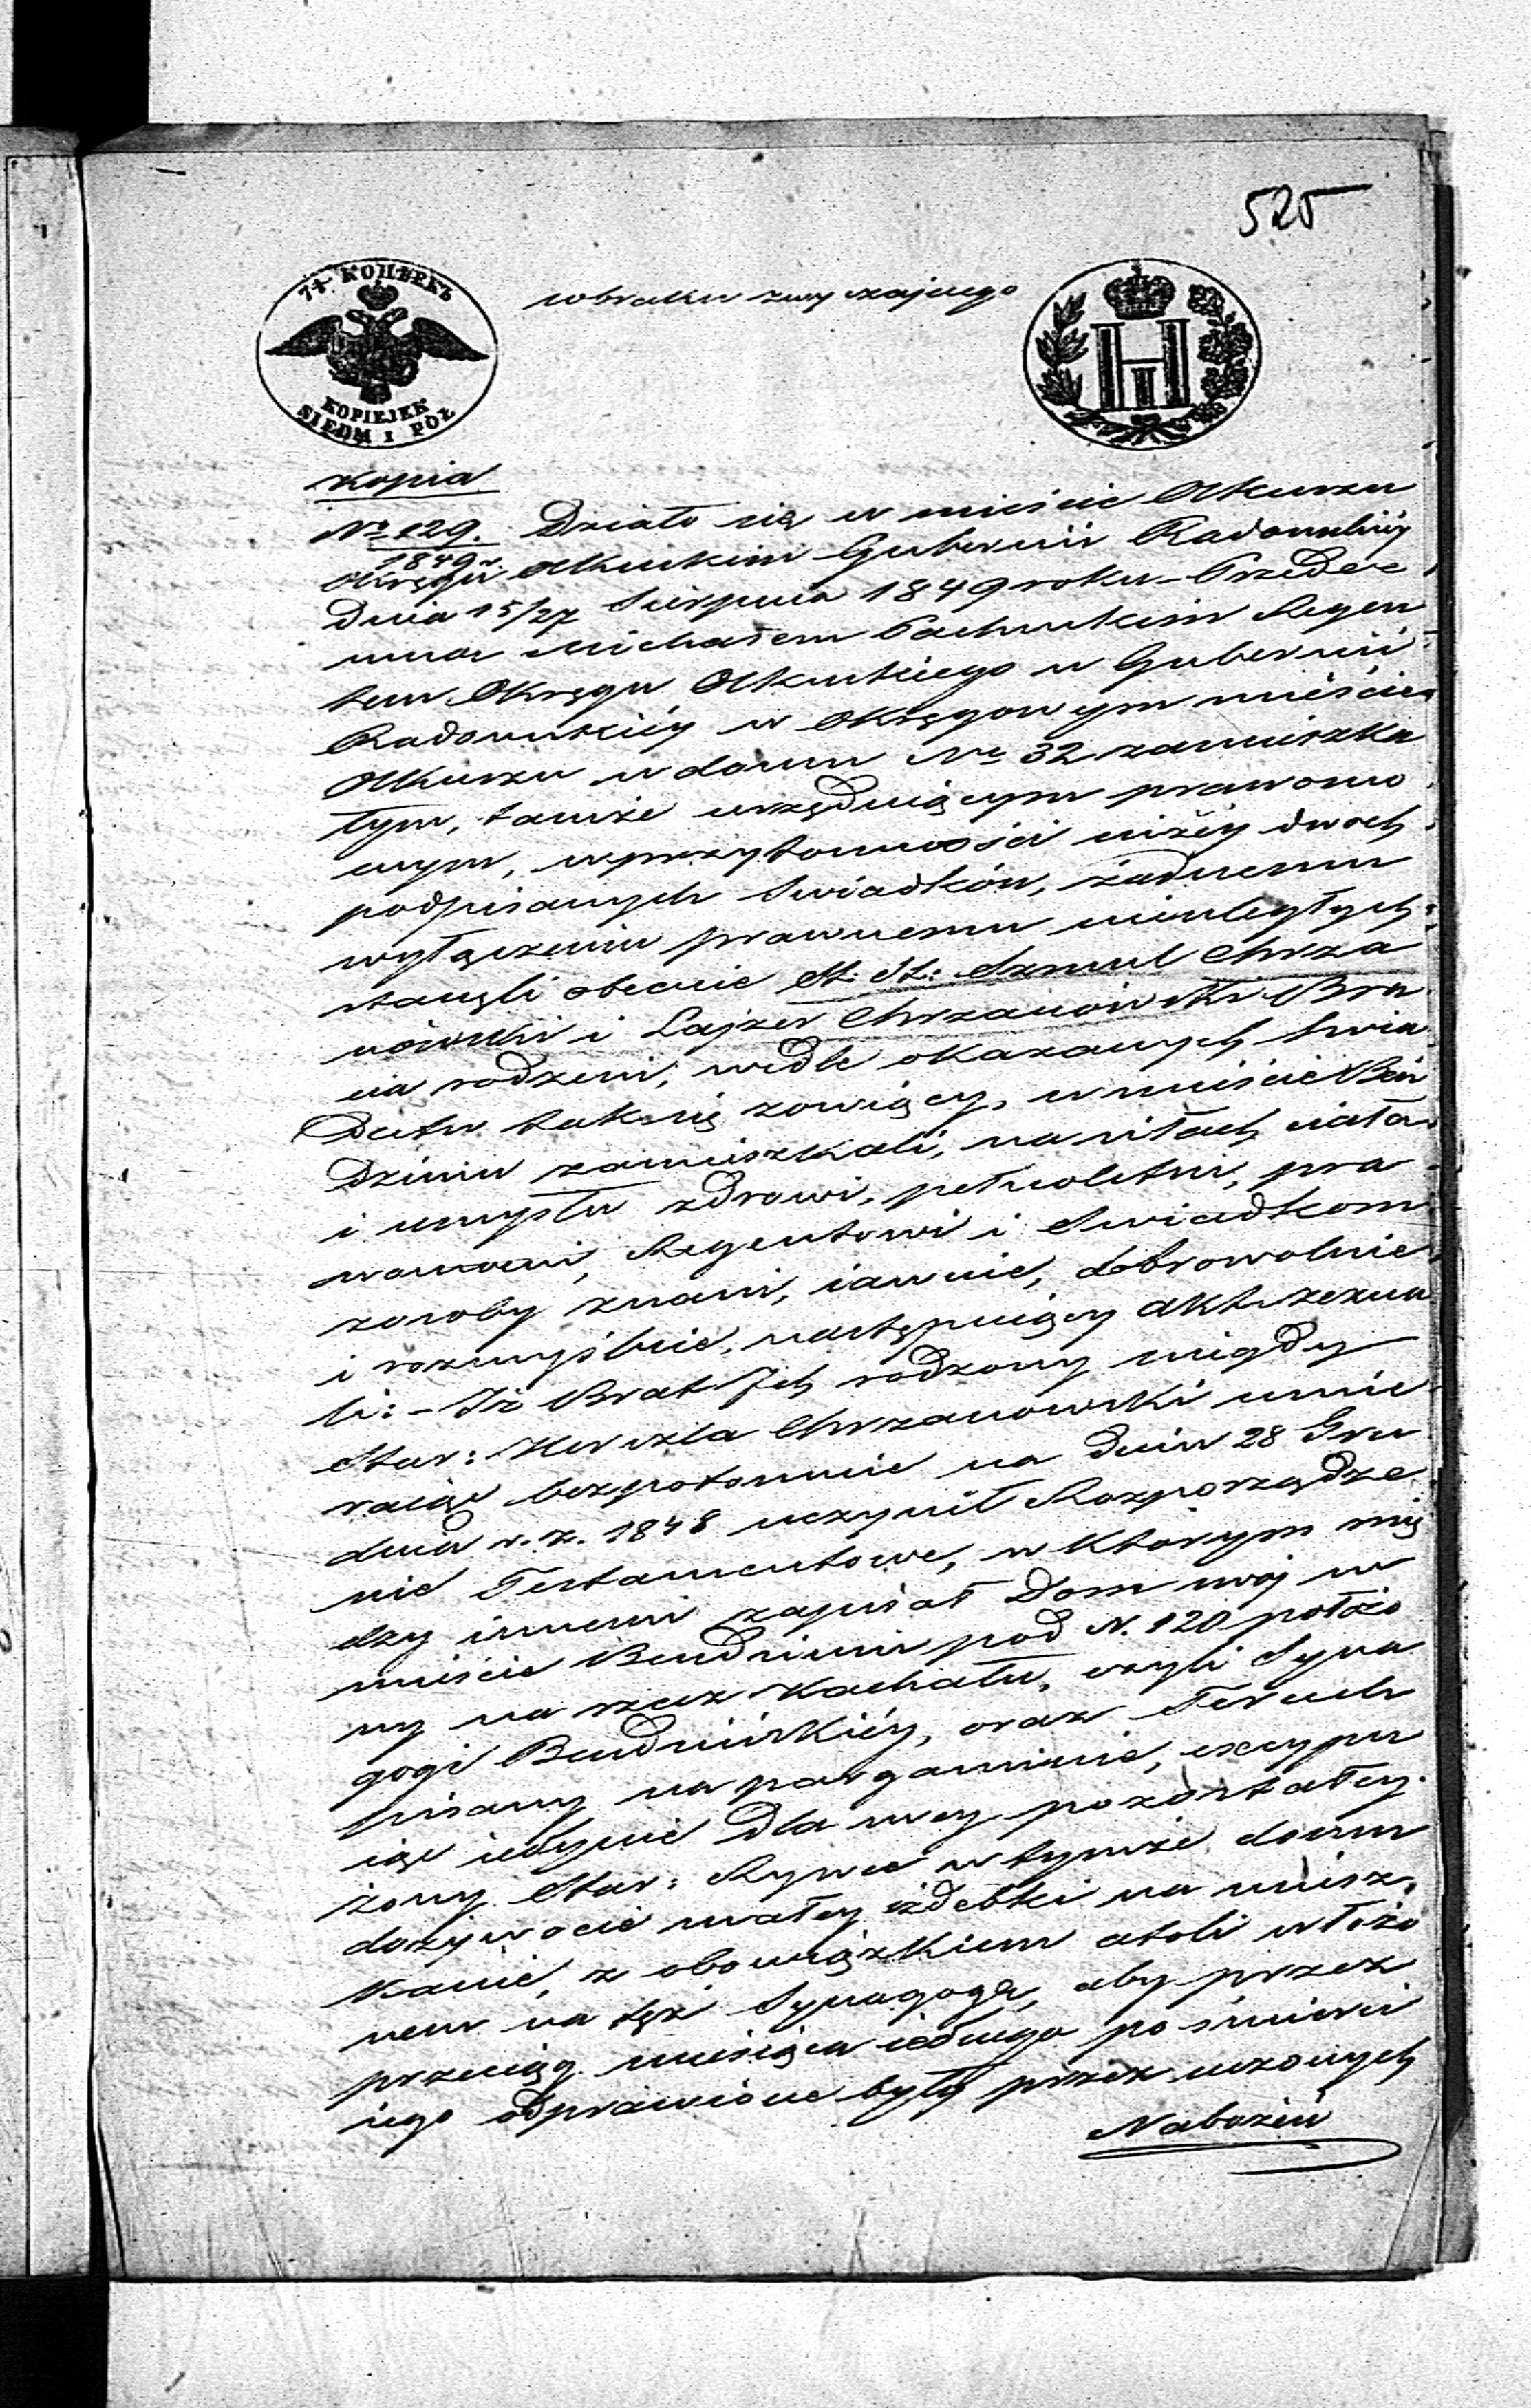 525
7½ КОПѢЕКЪ
KOPIEJEK
SIEDM I PÓŁ
w braku zwyczajnego
Kopia
№ 129. Działo się w mieście Olkuszu
1849 r.
Okręgu Olkuskim Gubernii Radomskiéy
Dnia 15/27 Sierpnia 1849 roku – Przede
mną Michałem Pachuckim Regen
tem Okręgu Olkuskiego w Gubernii
Radomskiéy w Okręgowym mieście
Olkuszu w domu Nr 32 zamieszka
łym, tamże urzędującym prawomo
cnym, w przytomności niżéy dwóch
podpisanych Świadków, żadnemu
wyłączeniu prawnemu nieuległych
stanęli obecnie St. St: Szmul Chrza
nowski i Lajzer Chrzanowski Bra
cia rodzeni, wedle okazanych Świa
dectw tak się zowiący, w mieście Bęn
dzinie zamieszkali, na siłach ciała
i umysłu zdrowi, pełnoletni, pra
womocni, Regentowi i Świadkom
z osoby znani, iawnie, dobrowolnie
i rozmyślnie, następuiący Akt zezna
li: – Iż Brat Ich rodzony niegdy
Star: Herszla Chrzanowski umie
raiąc bezpotomnie na dniu 28 Gru
dnia r. z. 1848 uczynił Rozporządze
nie Testamentowe, w którym mię
dzy innemi zapisał Dom swój w
mieście Bendzinie pod N. 120 położo
ny na rzecz Kachału, czyli Syna
gogi Bendzińskiéy, oraz
pisany na pargaminie, excypu
iąc iedynie dla swey pozostałey
żony Star: Rywce w tymże domu
dożywocie małey izdebki na miesz
kanie, z obowiązkiem atoli włożo
nem na tęż Synagogę, aby przez
przeciąg miesiąca iednego po śmierci
iego odprawione były przez uczonych
Nabożeń